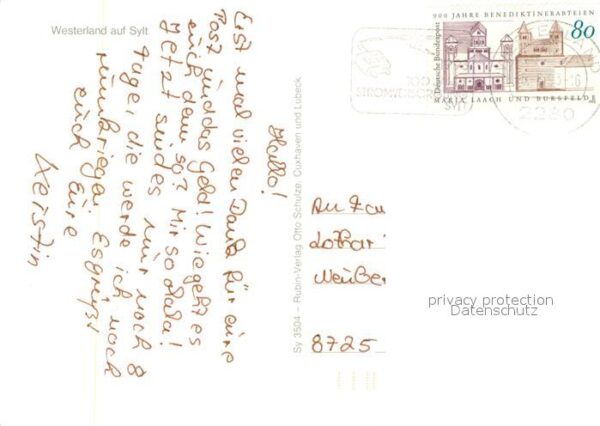 Westerland auf Sylt
Hallo!
Erst mal vielen Dank für eure
Post und das Geld! Wie geht es
euch denn so? Mir so lala!
Jetzt sind es nur noch 8
Tage, die werde ich noch
rumkriegen. Es grüßt
euch Eure
Kerstin
Sy 3504 – Rubin-Verlag Otto Schulze, Cuxhaven und Lübeck
900 JAHRE BENEDIKTINERABTEIEN
80
Deutsche Bundespost
MARIA LAACH UND BURSFELDE
100
SYLT
2280
An Fam
Lothar
8725
privacy protection
Datenschutz